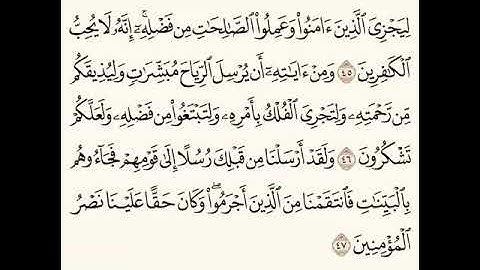 لِيَجْزِيَ ٱلَّذِينَ ءَامَنُوا۟ وَعَمِلُوا۟ ٱلصَّٰلِحَٰتِ مِن فَضْلِهِۦٓ ۚ إِنَّهُۥ لَا يُحِبُّ
ٱلْكَٰفِرِينَ ٤٥ وَمِنْ ءَايَٰتِهِۦٓ أَن يُرْسِلَ ٱلرِّيَاحَ مُبَشِّرَٰتٍ وَلِيُذِيقَكُم
مِّن رَّحْمَتِهِۦ وَلِتَجْرِيَ ٱلْفُلْكُ بِأَمْرِهِۦ وَلِتَبْتَغُوا۟ مِن فَضْلِهِۦ وَلَعَلَّكُمْ
تَشْكُرُونَ ٤٦ وَلَقَدْ أَرْسَلْنَا مِن قَبْلِكَ رُسُلًا إِلَىٰ قَوْمِهِمْ فَجَآءُوهُم
بِٱلْبَيِّنَٰتِ فَٱنتَقَمْنَا مِنَ ٱلَّذِينَ أَجْرَمُوا۟ ۖ وَكَانَ حَقًّا عَلَيْنَا نَصْرُ
ٱلْمُؤْمِنِينَ ٤٧